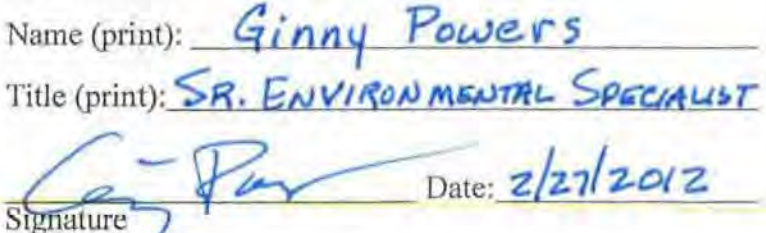 Name (print): Ginny Powers
Title (print): SR. ENVIRONMENTAL SPECIALIST
Date: 2/27/2012
Signature